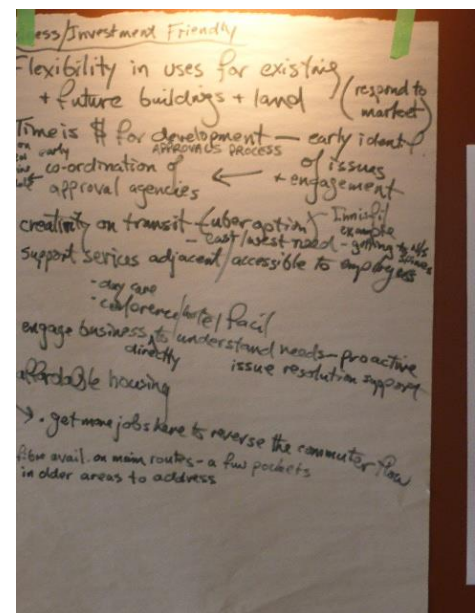 ness/Investment Friendly
Flexibility in uses for existing
+ future buildings + land (respond to
market)
Time is $ for development — early ident
APPROVALS PROCESS of issues
co-ordination of ← + engagement
approval agencies
creativity on transit - (uber option) - Innisfil
example
- east/west need - getting to N/S
support serices adjacent/accessible to employers
- day care
- conference/hotel facil
engage business to understand needs - proactive
directly issue resolution support
affordable housing
→ • get more jobs here to reverse the commuter flow
fibre avail. on main routes - a few pockets
in older areas to address